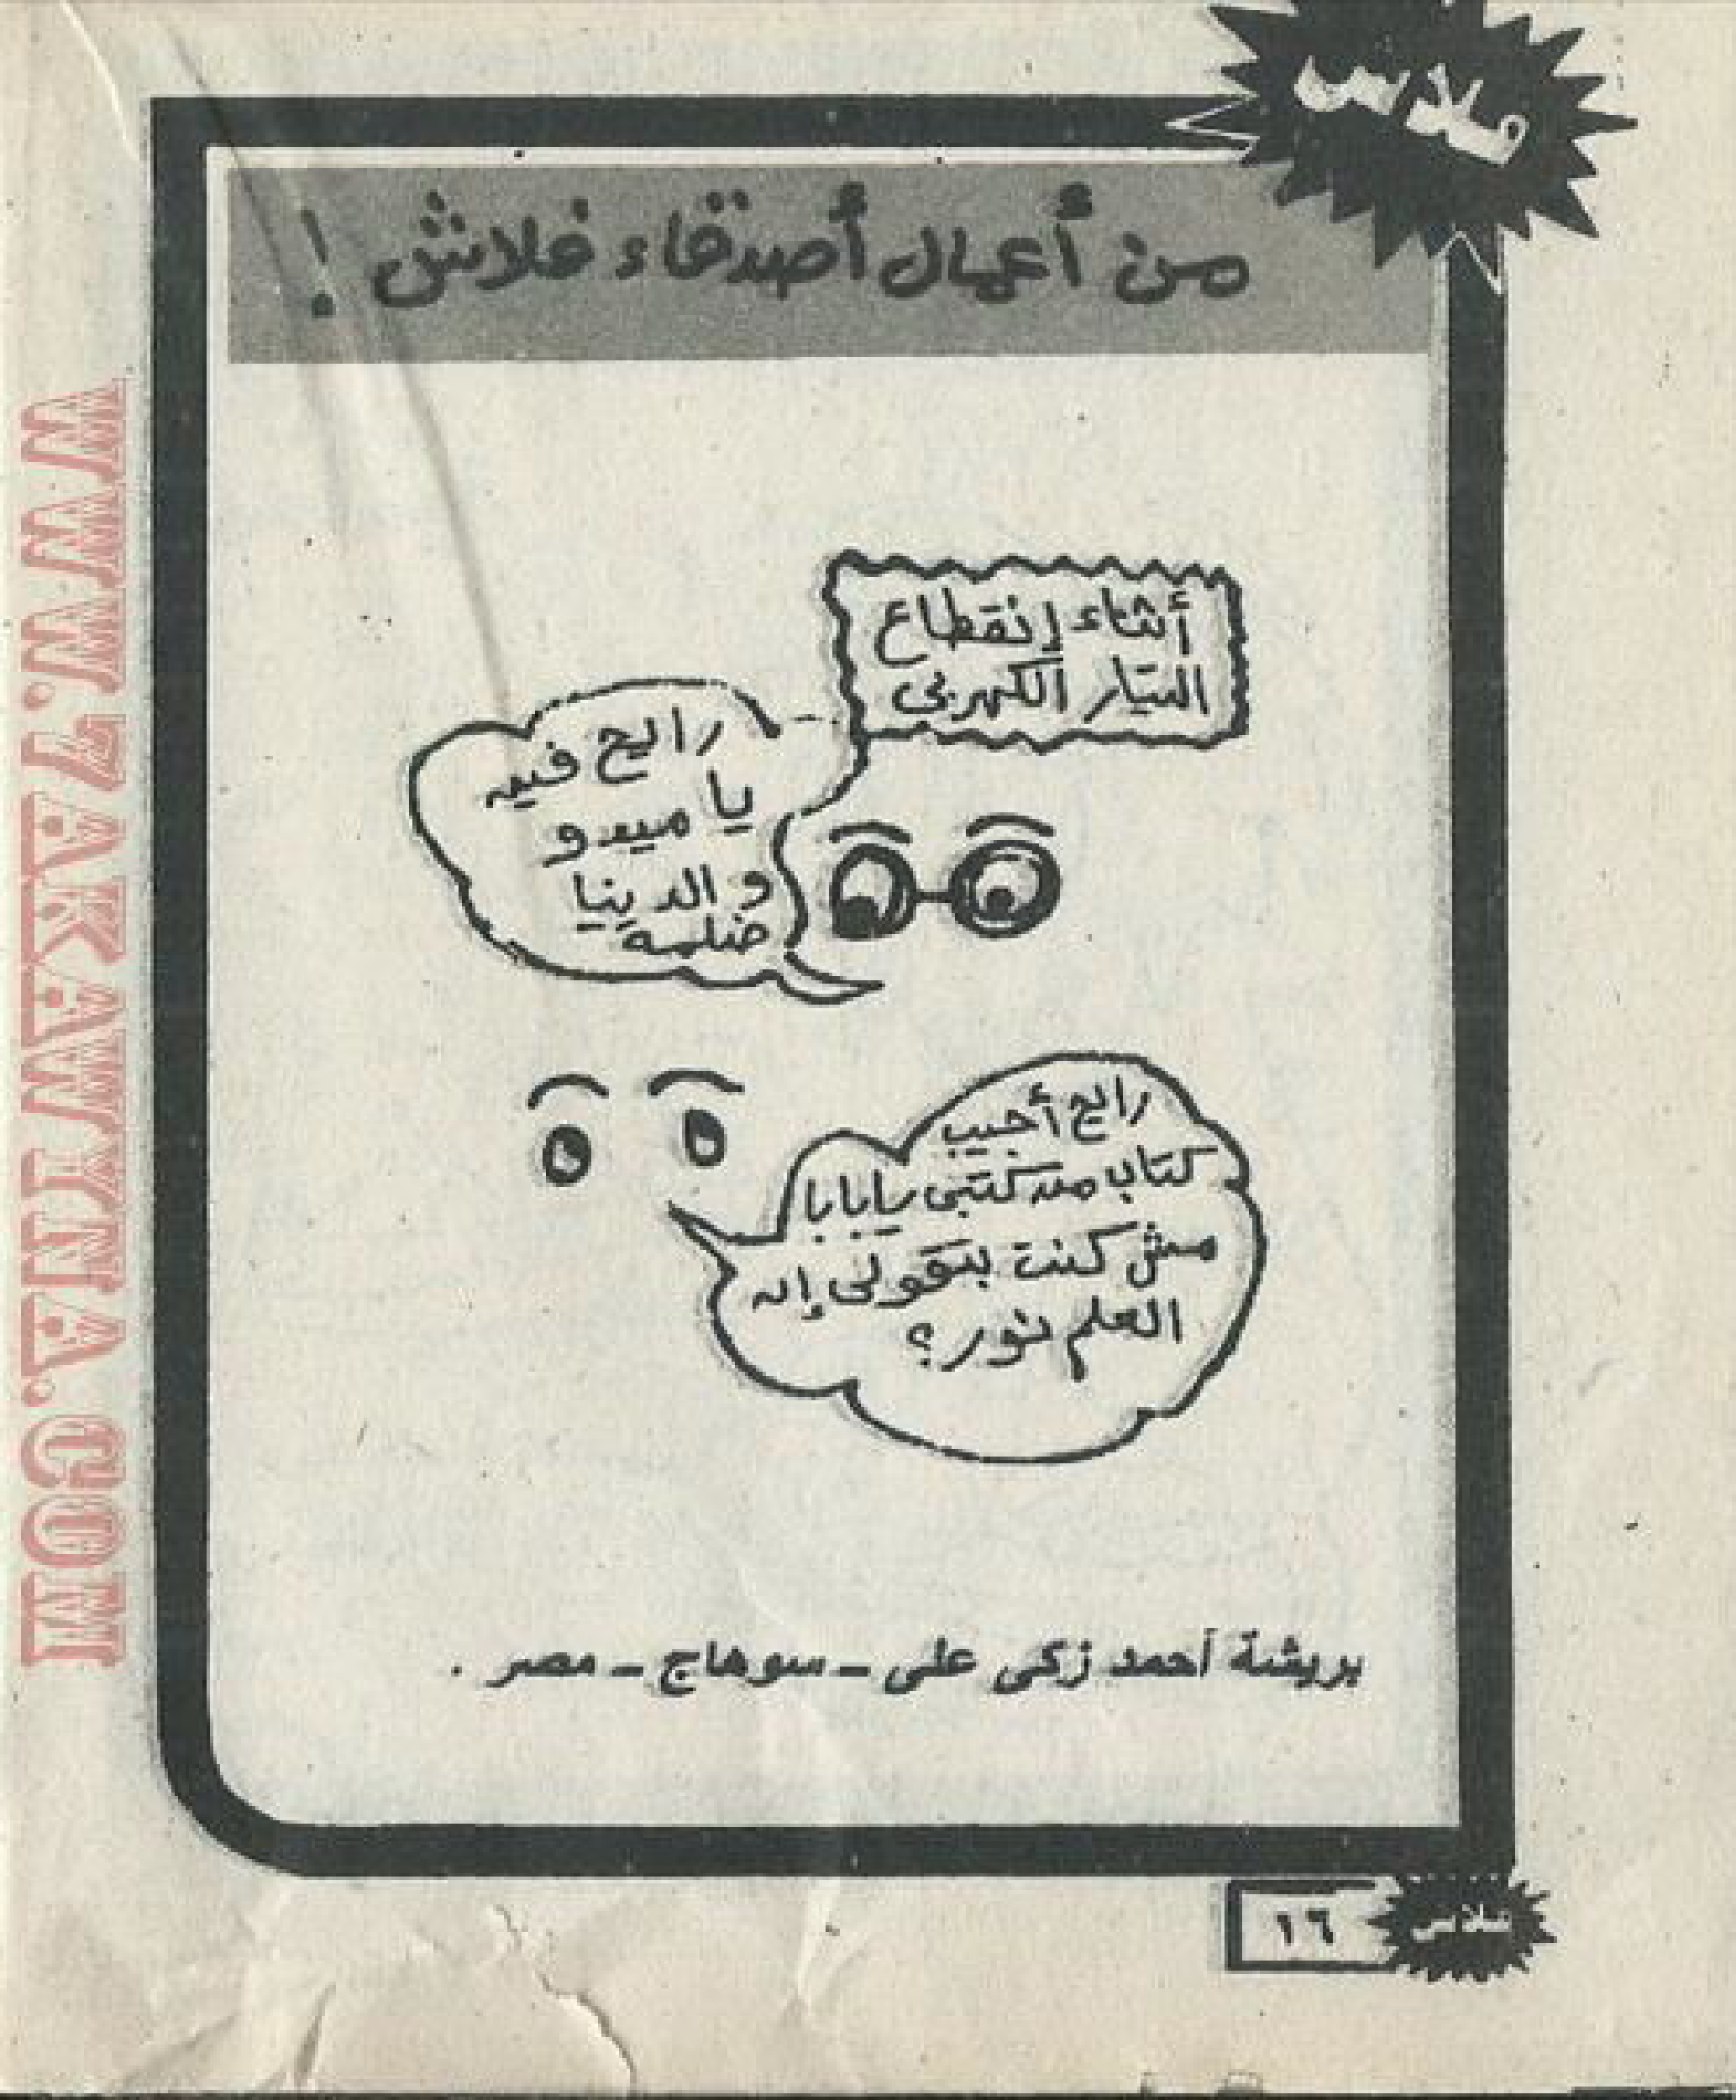 فلاش
من أعمال أصدقاء فلاش !
أثناء إنقطاع
التيار الكهربى
رايح فين
يا ميدو
و الدنيا
ضلمه
رايح أجيب
كتاب من كتبى يا بابا
مش كنت بتقولى إن
العلم نور؟
بريشة أحمد زكى على - سوهاج - مصر .
١٦
فلاش
WWW.7AKAWAINA.COM